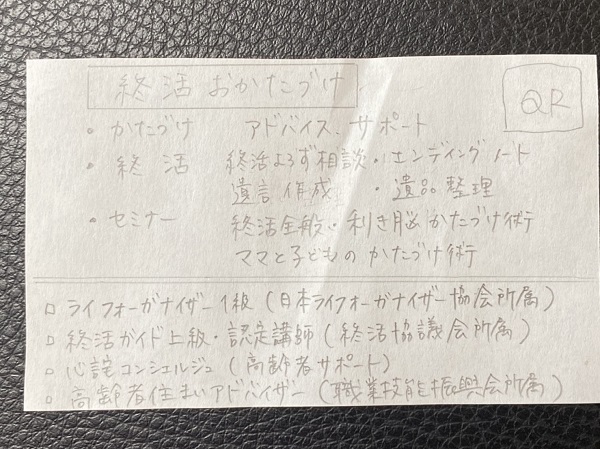 終活おかたづけ
QR
• かたづけ アドバイス、サポート
• 終活 終活よろず相談・エンディングノート
遺言作成 ・遺品整理
• セミナー 終活全般・利き脳かたづけ術
ママと子どものかたづけ術
□ ライフオーガナイザー1級(日本ライフオーガナイザー協会所属)
□ 終活ガイド上級・認定講師(終活協議会所属)
□ 心託コンシェルジュ(高齢者サポート)
□ 高齢者住まいアドバイザー(職業技能振興会所属)